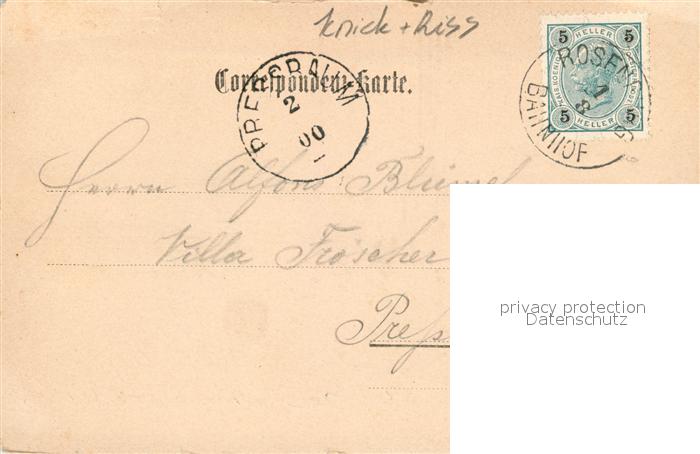 knick + Riss
5 HELLER 5
5 HELLER 5
Correspondenz-Karte.
PRESSBAUM
2
00
ROSEN
1
8
BAHNHOF
Herrn Alfons Blümel
Villa Fröscher
Preß
privacy protection
Datenschutz